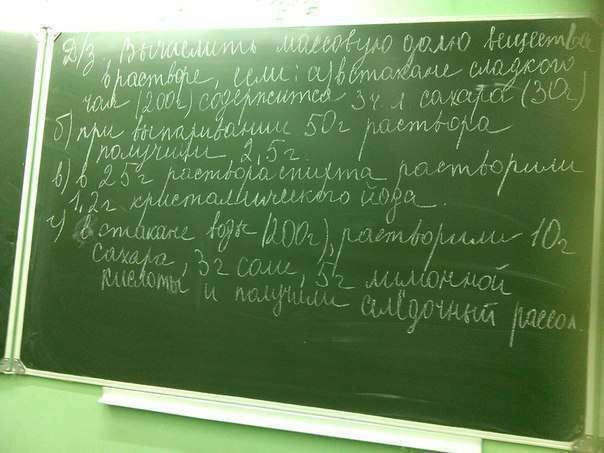 Д/з Вычислить массовую долю вещества
в растворе, если: а) в стакане сладкого
чая (200г) содержится 3 ч. л. сахара (30г)
б) при выпаривании 50г раствора
получили 2,5г.
в) в 25г раствора спирта растворили
1,2г кристалического йода.
г) в стакане воды (200г), растворили 10г
сахара, 3г соли, 5г лимонной
кислоты и получили слёдочный рассол.